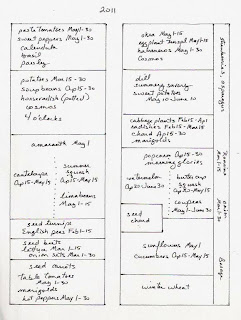 2011
paste tomatoes May 1-30
sweet peppers May 1-30
calendula
basil
parsley
potatoes Mar 15-30
soup beans Ap 15-30
horseradish (potted)
cosmos
4 o'clocks
amaranth May 1
canteloupe
Ap 15-May 15
summer
squash
Ap 15-May 15
lima beans
May 1-15
seed turnips
English peas Feb 1-15
seed beets
lettuce Mar 1-15
onion sets Mar 1-30
seed carrots
table tomatoes
May 1-30
marigolds
hot peppers May 1-30
okra May 1-15
eggplant transpl May 1-15
May 1-30
cosmos
dill
summer savory
sweet potatoes
May 10-June 10
cabbage plants Feb 15-Ap 1
radishes Feb 15-Mar 15
chard Ap 15-30
marigolds
popcorn Ap 15-30
morning glories
watermelon
Ap 20-June 30
buttercup
squash
Ap 20-May 15
seed
chard
cowpeas
May 1-June 30
sunflowers May 1
cucumbers Ap 15-May 15
winter wheat
strawberries, asparagus
Mar 1-15
Borage